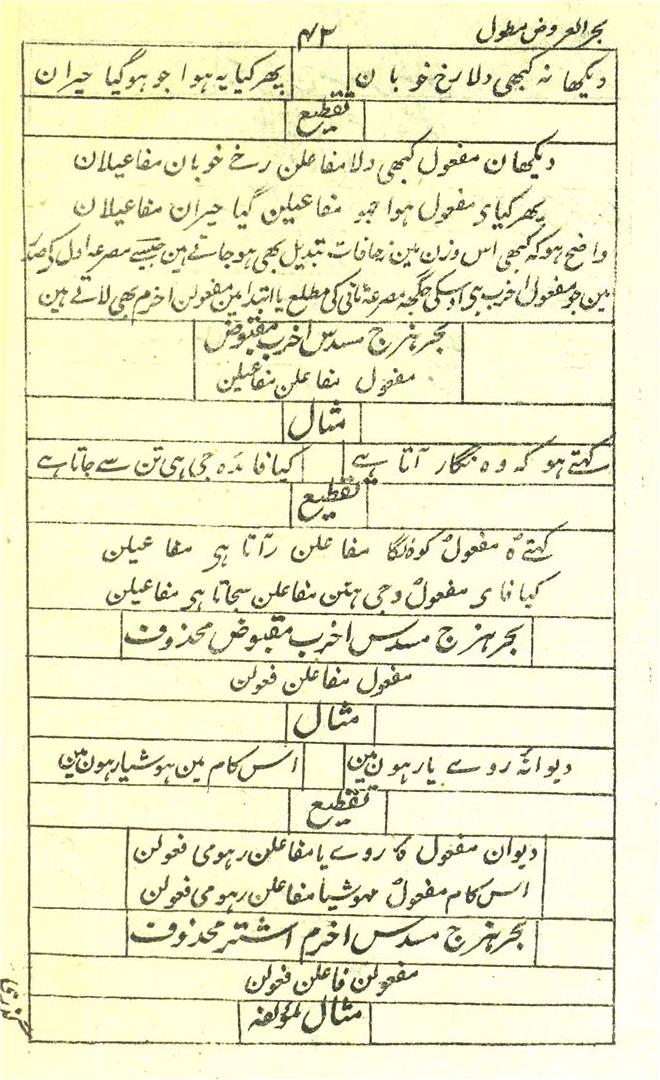 بحر العروض مطول
۴۲
دیکھا نہ کبھی دلا رخ خوبان
پھر کیا یہ ہوا جو ہو گیا حیران
تقطیع
دیکھان مفعول کبھی دلا مفاعلن رخے خوبان مفاعیلان
پھر کیای مفعول ہوا جہو مفاعیلن گیا حیران مفاعیلان
واضح ہو کہ کبھی اس وزن مین زحافات تبدیل بھی ہو جاتے ہین جیسے مصرعہ اول کی صدر
مین جو مفعول اخرب ہی اوسکی جگہ مصرعہ ثانی کی مطلع یا ابتدا مین مفعولن اخرم بھی لاتے ہین
بحر ہزج مسدس اخرب مقبوض
مفعول مفاعلن مفاعیلن
مثال
کہتے ہو کہ وہ نگار آتا ہے
کیا فائدہ جی ہی تن سے جاتا ہے
تقطیع
کہتے ہُ مفعولُ کوہ نگا مفاعلن رآتا ہی مفاعیلن
کیا فای مفعولُ دجی ہتن مفاعلن سجاتا ہی مفاعیلن
بحر ہزج مسدس اخرب مقبوض محذوف
مفعول مفاعلن فعولن
مثال
دیوانہ روے یار ہون مین
اس کام مین ہوشیار ہون مین
تقطیع
دیوان مفعول ۂ روے یا مفاعلن رہومی فعولن
اس کام مفعولُ مہوشیا مفاعلن رہومی فعولن
بحر ہزج مسدس اخرم اشتر محذوف
مفعولن فاعلن فعولن
مثال لمؤلفہ